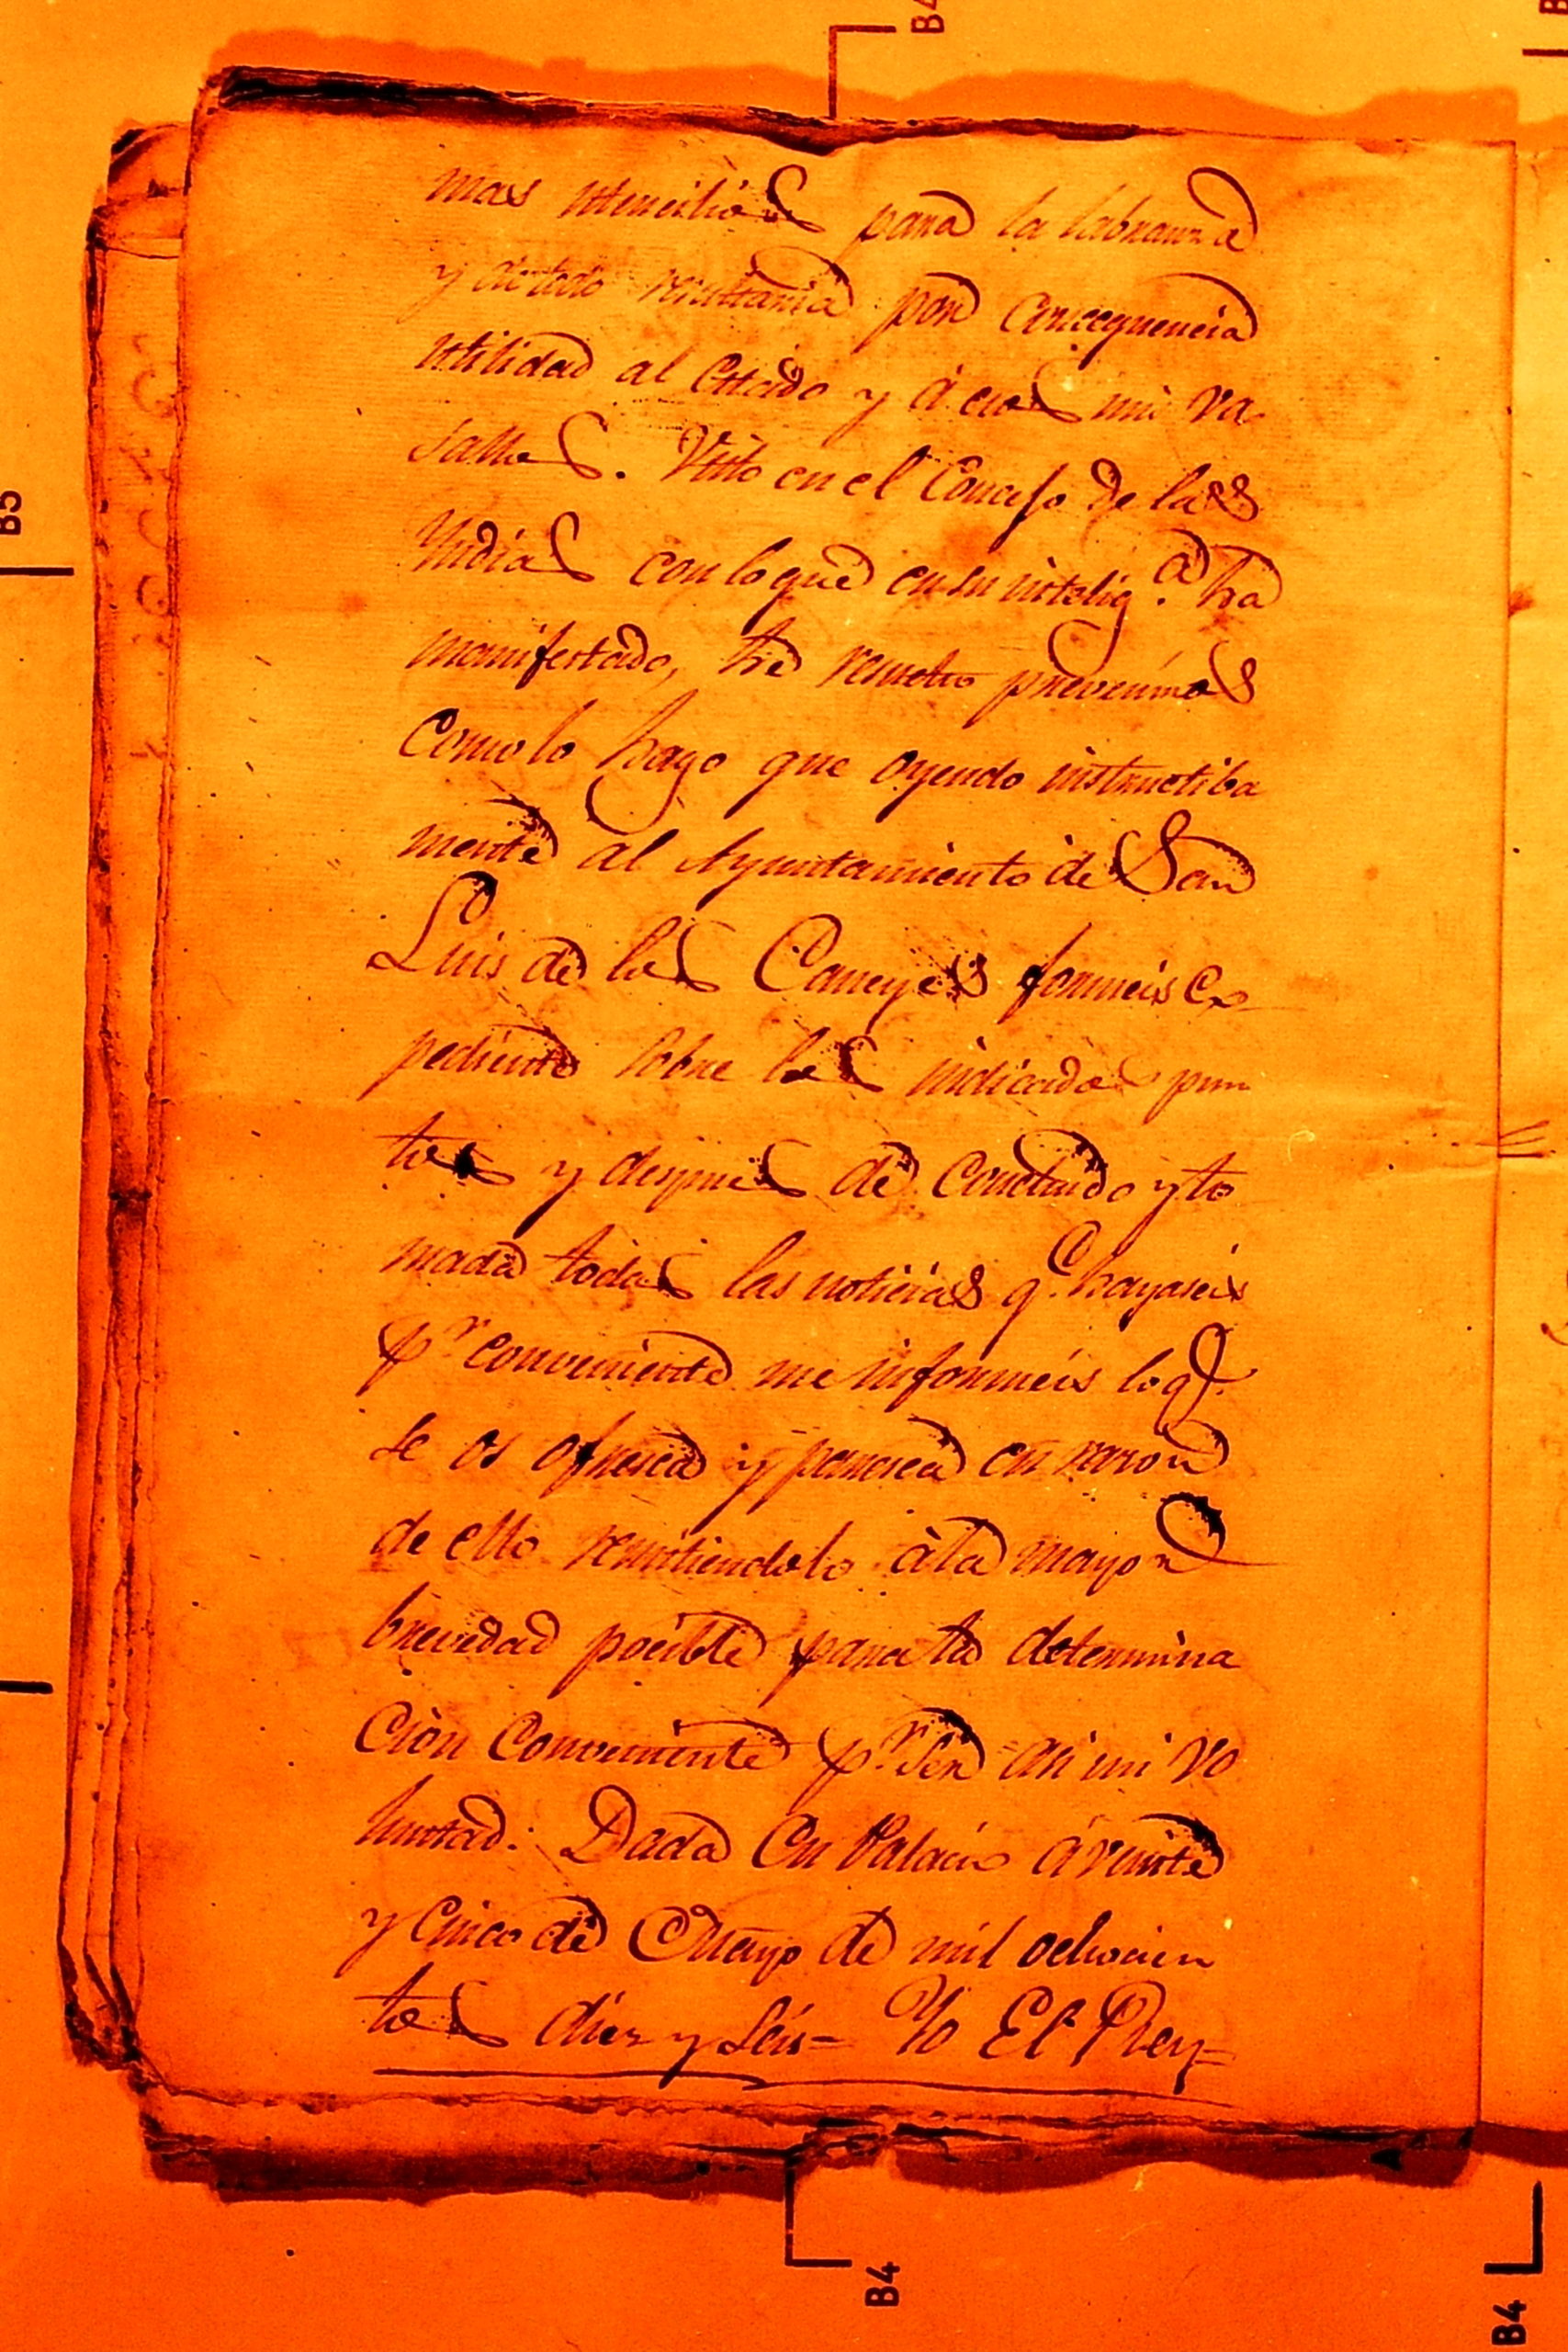 mas utencilios para la labranza
y de todo resultaria por concequencia
utilidad al Estado y á esos mis va
sallos. Visto en el Concejo de las
Yndias con lo que en su intelig.ª ha
manifestado, he resuelto preveniros
como lo hago que oyendo instructiba
mente al Ayuntamiento de San
Luis de los Caneyes formeis ex
pediente sobre los indicados pun
tos y despues de concluido y to
mada todas las noticias q.e hayaseis
p.r conveniente me informéis lo q.e
se os ofresca y paresca en razon
de ello remitiendolo à la mayor
brevedad pocible para la determina
ción conveniente p.r ser asi mi vo
luntad. Dada en Palacio á veinte
y cinco de Mayo de mil ochocien
tos diez y séis= Yo El Rey=
B4
B5
B4
B4